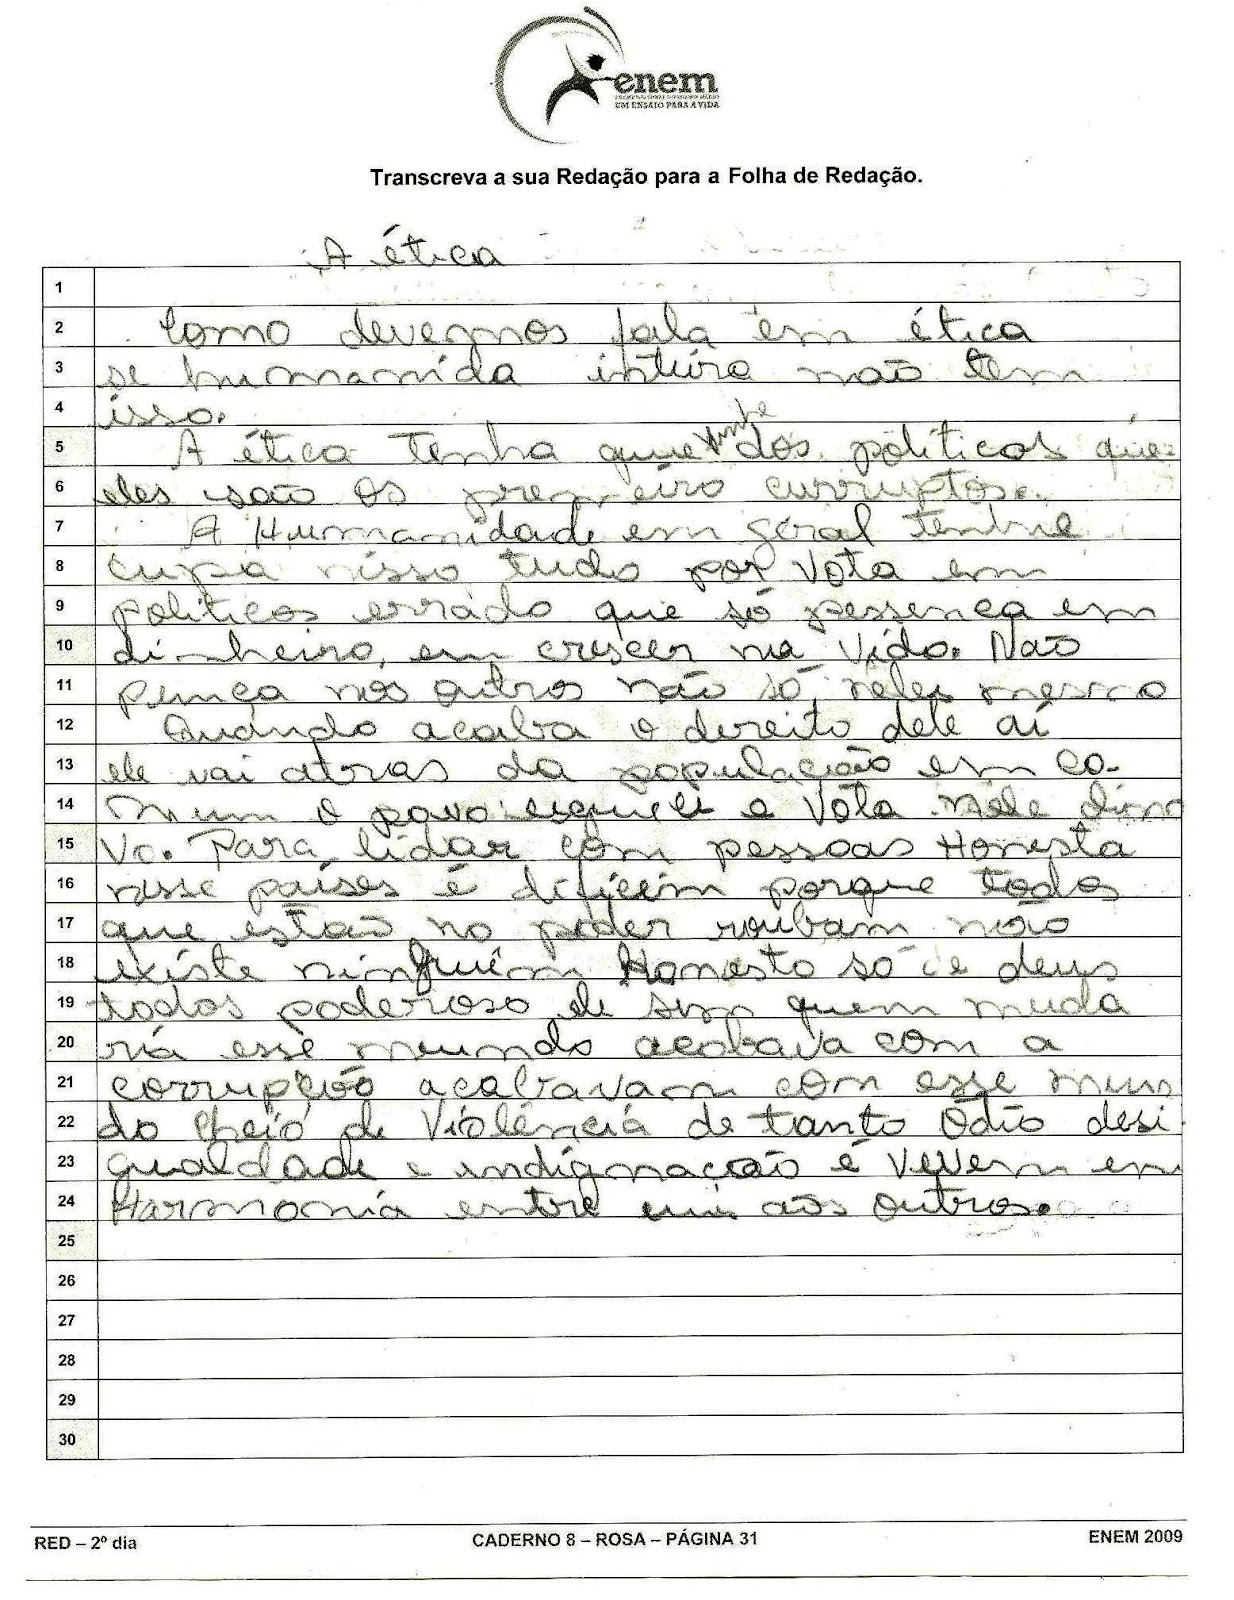 enem
UM ENSAIO PARA A VIDA
Transcreva a sua Redação para a Folha de Redação.
A ética
1
2 Como devemos fala em ética
3 se humanida inteira não tem
4 isso.
5 A ética tenha que vinhe dos politicos que
6 eles são os premeiro curruptos.
7 A Humanidade em geral tenhne
8 cupa nisso tudo por vota em
9 politicos errado que só pessença em
10 dinheiro, em crescer na vida. Não
11 pença nos outros não só neles mesmo
12 Quando acaba o dereito dele aí
13 ele vai atras da população em co-
14 mum o povo esquece e vota nele dino
15 vo. Para lidar com pessoas Honesta
16 nesse países é dificím porque todos
17 que estão no poder roubam não
18 existe ninguím Honesto só e deus
19 todos poderoso de sino quem muda
20 ria esse meundo acabava com a
21 corrupção acabavam com esse mun
22 do cheio de violência de tanto Ódio desi
23 gualdade e indignação é vevem em
24 Harmonia entre uns aos outros.
25
26
27
28
29
30
RED – 2º dia
CADERNO 8 – ROSA – PÁGINA 31
ENEM 2009